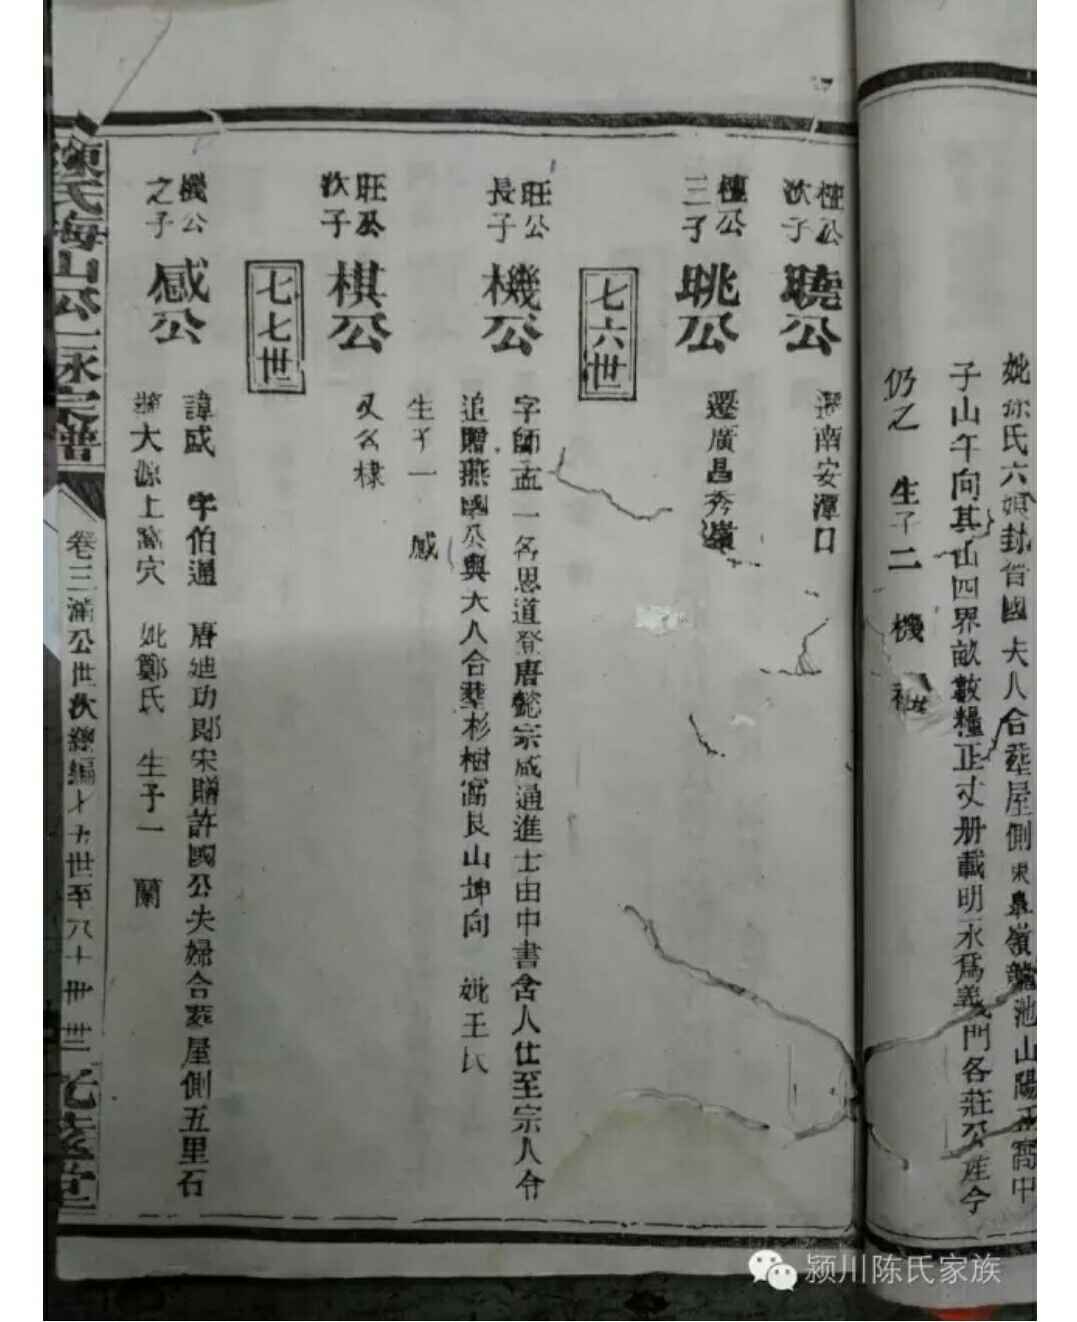 氏六娘封晉國夫人合塟屋側東皋嶺龍池山陽
子山午向其山四界畝數糧正丈册載明永爲義門各莊公産今
仍之 生子二 機
檀公次子
曉公
遷南安潭口
檀公三子
晀公
遷廣昌秀嶺
七六世
旺公長子
機公
字師孟一名思道登唐懿宗咸通進士由中書舍人仕至宗人令
追贈燕國公與夫人合塟杉樹窩艮山坤向 妣王氏
生子一 感
旺公次子
棋公
又名棣
七七世
機公之子
感公
諱感 字伯通 唐廸功郎宋贈許國公夫婦合塟屋側五里石
大源上窩穴 妣鄭氏 生子一 蘭
陳氏海山公一脉宗譜
卷三滿公世次總編 七十五世至八十世
堂
颍川陈氏家族